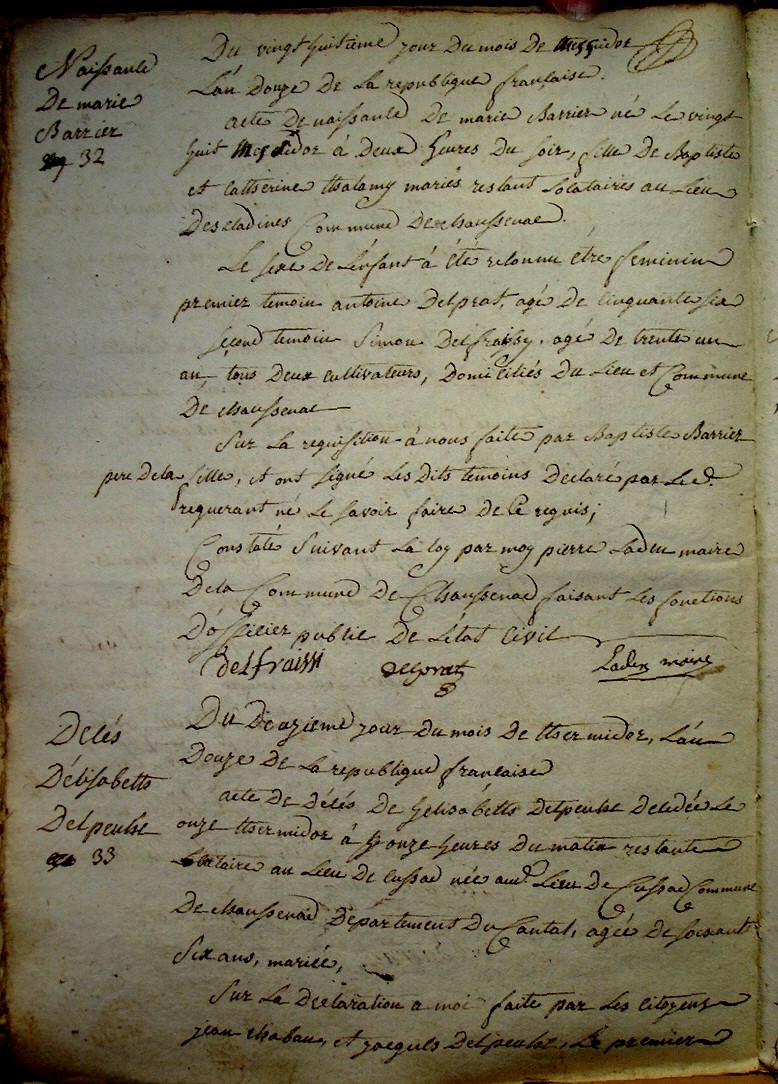 Naissance
De marie
Barrier
32
Du vingt huitieme jour Du mois De messidor
L'an Douze De La republique française.
acte De naissance De marie Barrier né Le vingt
huit Messidor à Deux heures Du soir, fille De Baptiste
et Catherine thalamy mariés restant Locataires au Lieu
Descladines Commune De chaussenac.
Le sexe De L'enfant à été reconnu être feminin
premier temoin antoine Delprat, agé De cinquante six
second temoin Simon Delfraissy. agé De trente un
an, tous Deux cultivateurs, Domiciliés Du Lieu et Commune
De chaussenac
Sur La requisition à nous faite par Baptiste Barrier
pere De la fille, et ont signé Les Dits temoins Declaré par Le d.
requerant né Le savoir faire De Ce requis;
Constaté Suivant La loy par moy pierre Laden maire
De la Commune De Chaussenac faisant Les fonctions
D'officier public De L'état Civil
delfraissi delprat Laden maire
Decés
D'élisabetts
Delpeuhe
33
Du Douzieme jour Du mois De thermidor, L'an
Douze De La republique francaise
acte De Décés De helisabetts Delpeuhe Decedée Le
onze thermidor à onze heures Du matin restante
Locataire au Lieu De Cussac née aud. Lieu De Cussac Commune
De chaussenac Département Du Cantal, agée De soixante
Six ans, mariée,
Sur La Declaration a moi faite par Les citoyens
jean chabau, et jacques Delpeuhe, Le premier